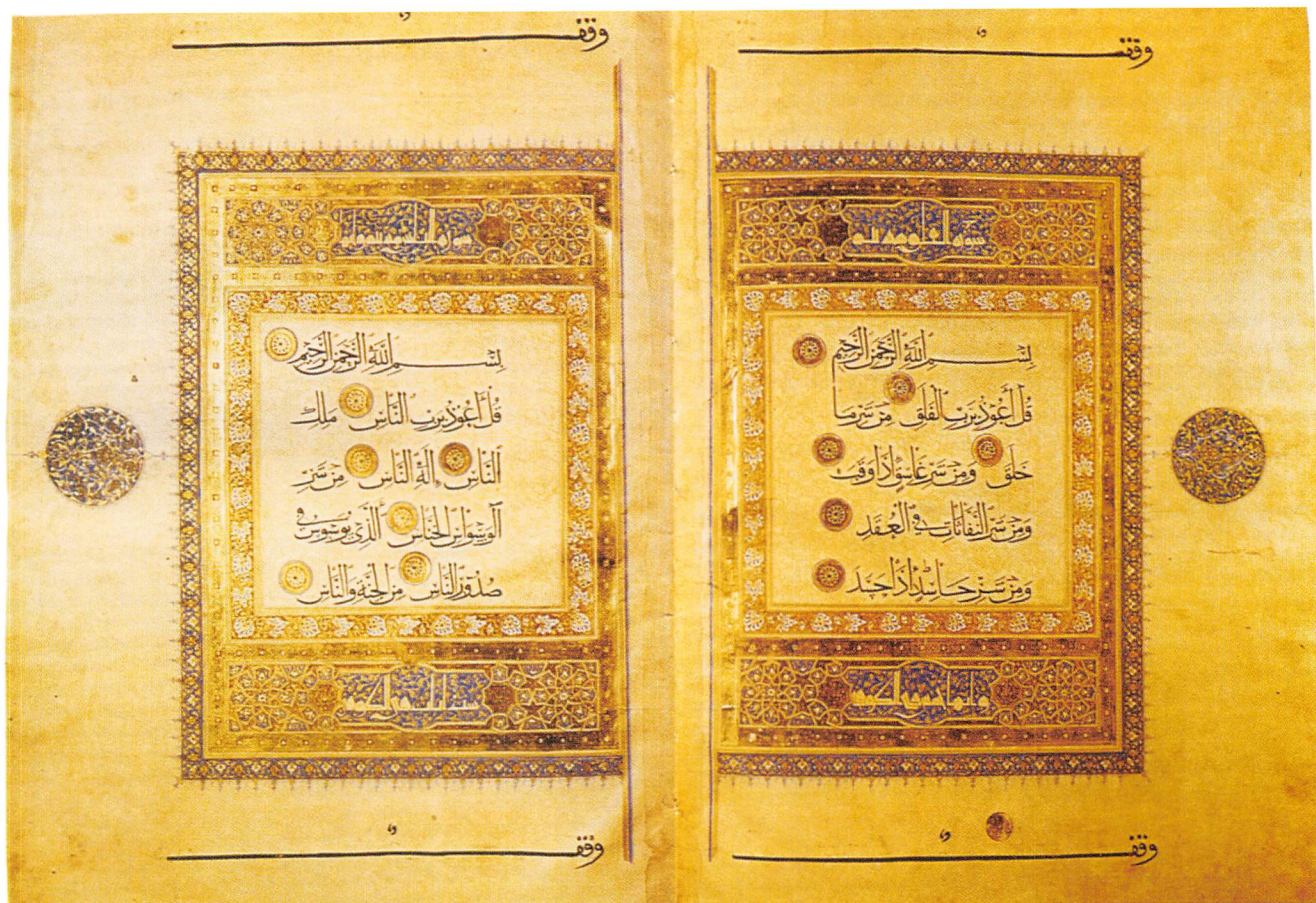 وقف
سورة الفلق
بِسْمِ اللَّهِ الرَّحْمَنِ الرَّحِيمِ
قُلْ أَعُوذُ بِرَبِّ الْفَلَقِ مِنْ شَرِّ مَا
خَلَقَ وَمِنْ شَرِّ غَاسِقٍ إِذَا وَقَبَ
وَمِنْ شَرِّ النَّفَّاثَاتِ فِي الْعُقَدِ
وَمِنْ شَرِّ حَاسِدٍ إِذَا حَسَدَ
وقف
وقف
سورة الناس
بِسْمِ اللَّهِ الرَّحْمَنِ الرَّحِيمِ
قُلْ أَعُوذُ بِرَبِّ النَّاسِ مَلِكِ
النَّاسِ إِلَهِ النَّاسِ مِنْ شَرِّ
الْوَسْوَاسِ الْخَنَّاسِ الَّذِي يُوَسْوِسُ فِي
صُدُورِ النَّاسِ مِنَ الْجِنَّةِ وَالنَّاسِ
وقف